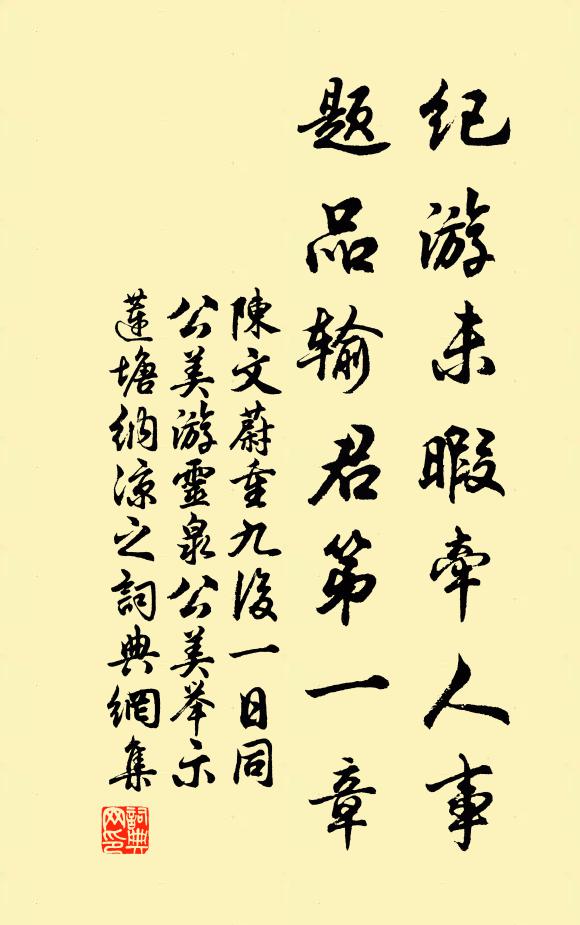 纪游未暇牵人事
题品输君第一章
陳文蔚重九後一日同
公美游靈泉公美举示
蓮塘納凉之詞典網集
詞典網印